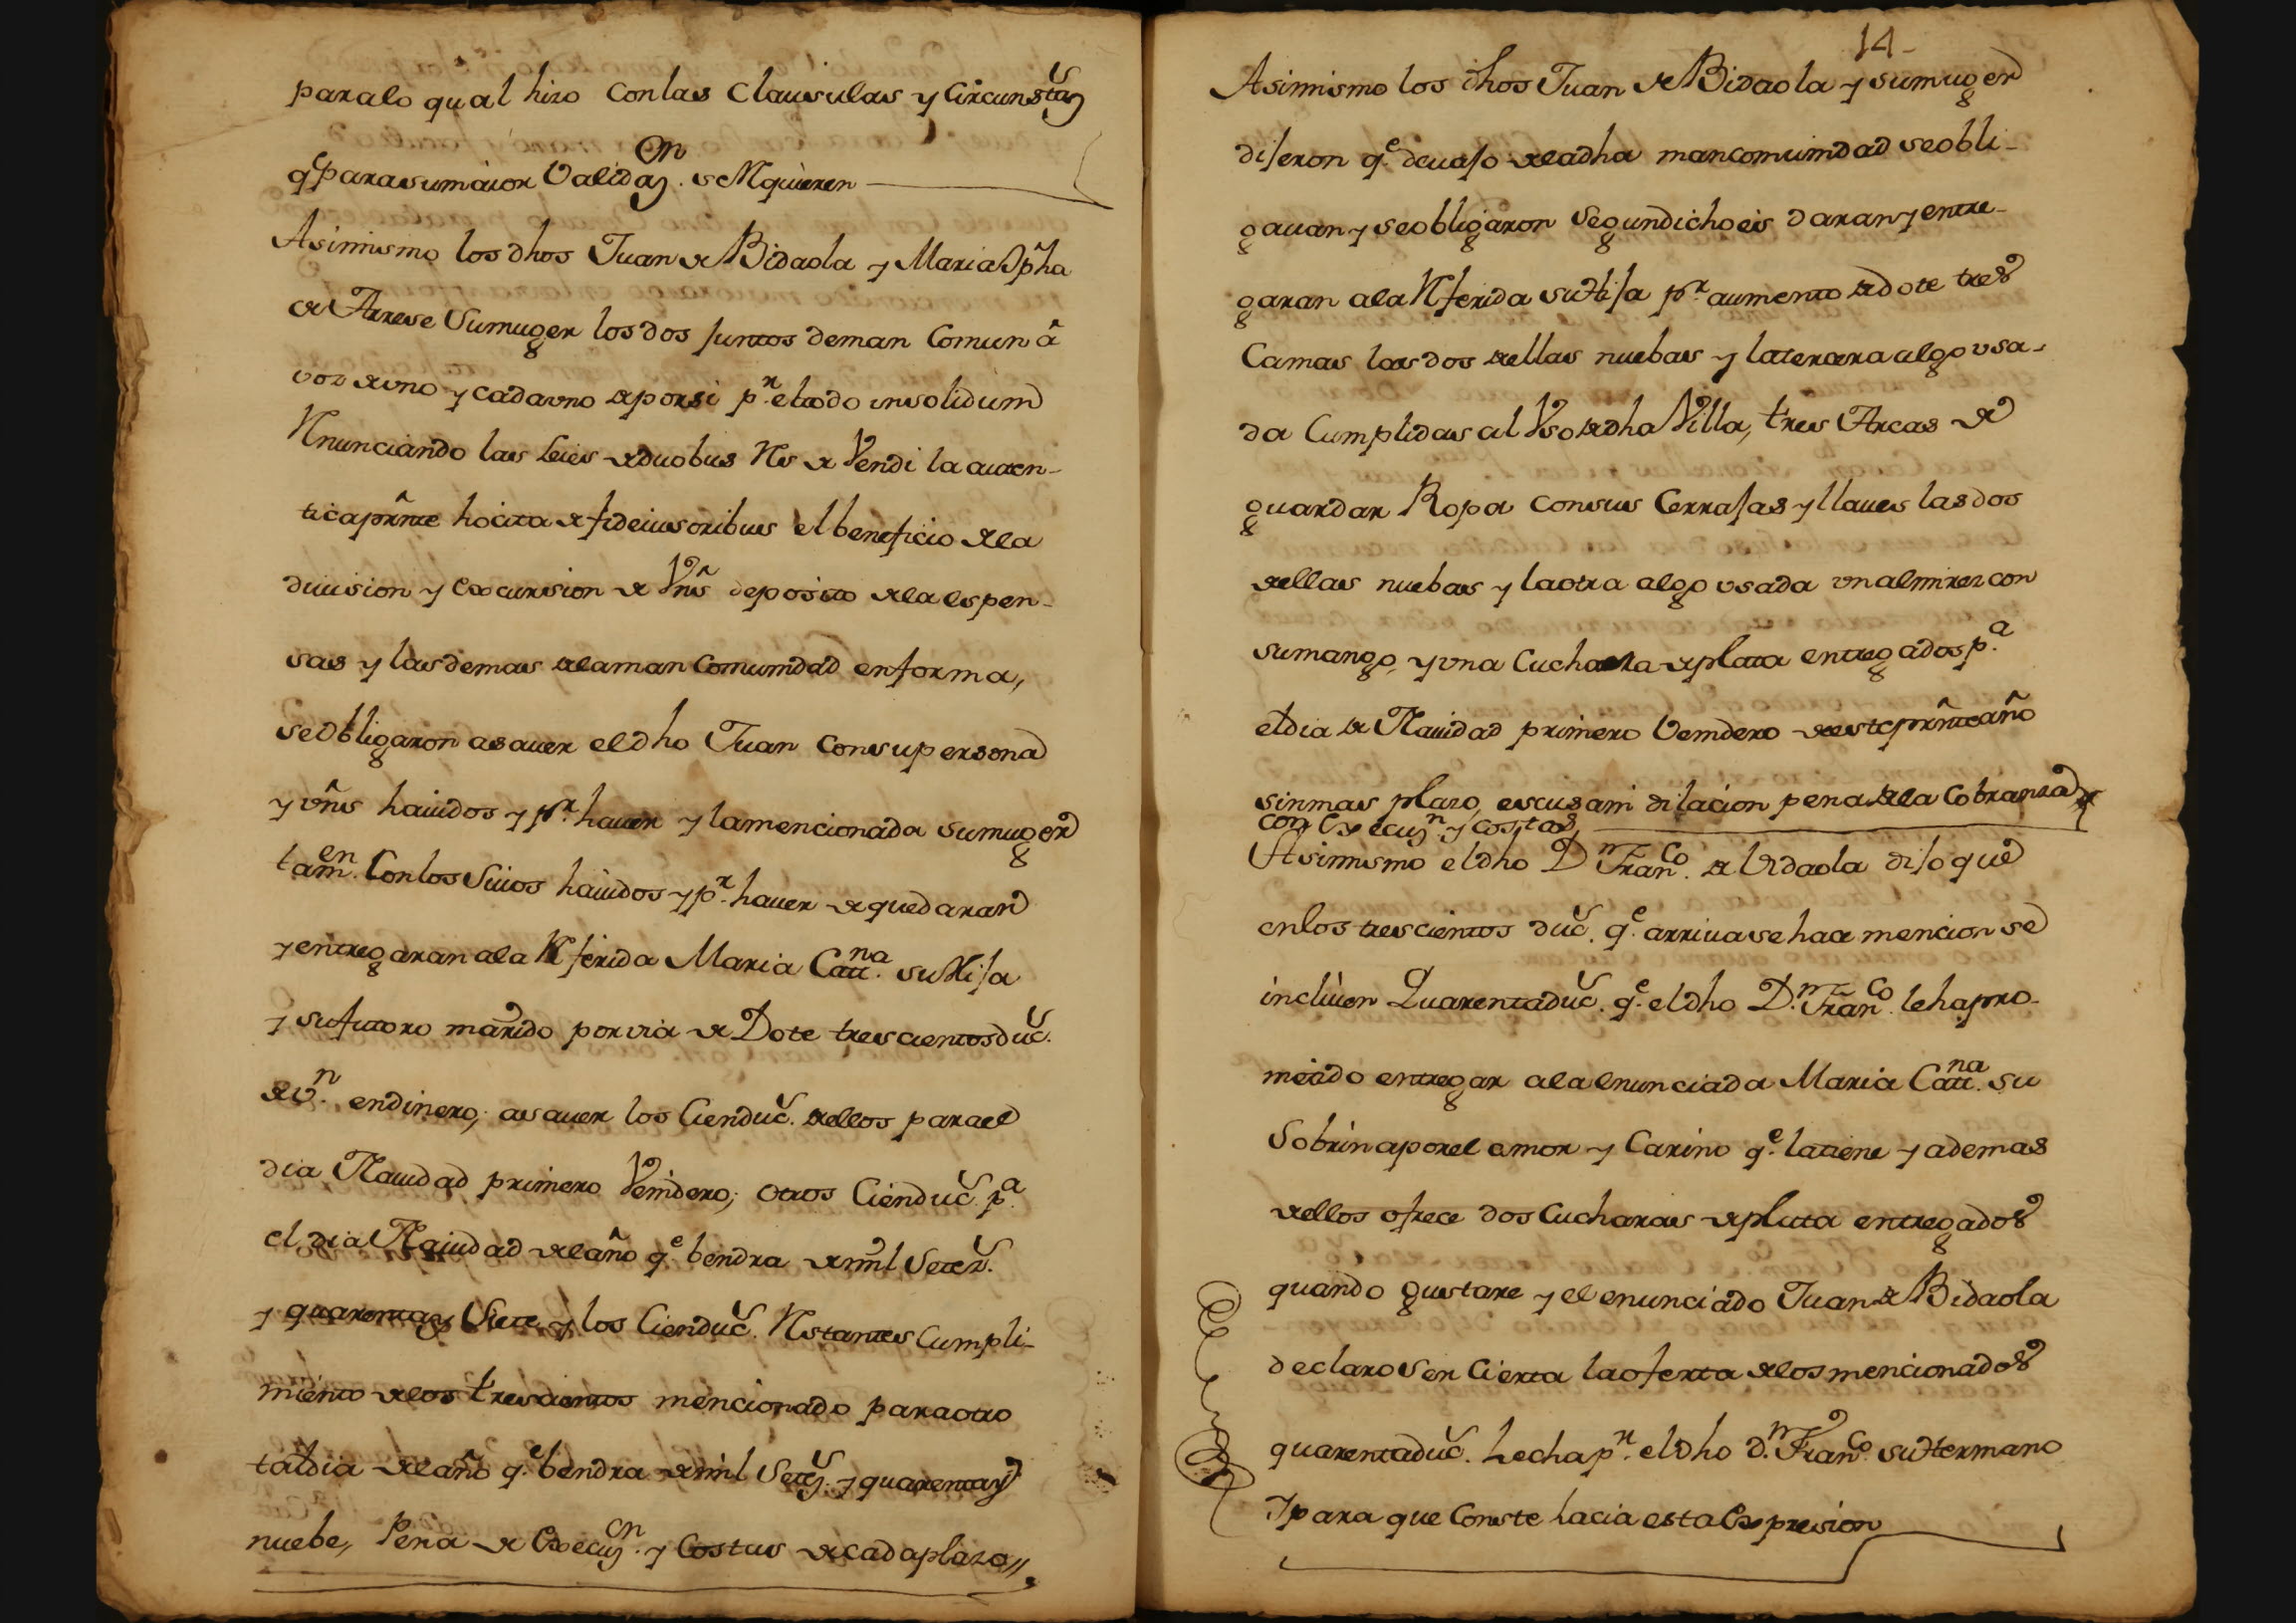 paralo qual hizo Conlas Clausulas y Circunstas
qe parasumaior Validazon. se Rquieren
Asimismo los dhos Juan de Bidaola y Maria Jpha
de Arrese Sumuger los dos Juntos deman Comun â
voz deuno y cadauno deporsi pr. eltodo insolidum
Rnunciando las Leies deduobus Rs de Vendi la auten-
tica prnte hocita de fideiusoribus el beneficio dela
diuision y excursion de Vns deposito delaespen-
sas y lasdemas delaman Comunidad enforma,
seobligaron asauer eldho Juan Consupersona
y vns hauidos y pr. hauer y lamencionada sumuger
tamen. Conlos Suios hauidos y pr. hauer de quedaran
y entregaran ala Rferida Maria Catna. su Hija
y sufuturo marido porvia de Dote trescientos duc.
de vn. endinero; asauer los Cienduc. dellos parael
dia Nauidad primero Venidero; otros Cienduc. pa.
el dia Nauidad delaño qe bendra demil Setez.
y quarentay Siete y los Cienduc. Rstantes Cumpli-
miento delos trescientos mencionado paraotro
taldia delaño qe bendra demil Setez. y quarentay
nuebe, Pena de Execuzon. y Costas decadaplazo,,
14-
Asimismo los dhos Juan de Bidaola y sumuger
dijeron qe. deuajo deladha mancomunidad seobli-
gauan y seobligaron Segundichoes daran y entre-
garan ala Rferida suHija pr. aumento dedote tres
Camas las dos dellas nuebas y latercera algo vsa-
da Cumplidas al Vso dedha Villa, tres Arcas de
guardar Ropa consus Cerrajas y llaues lasdos
dellas nuebas y laotra algo vsada vnalmirez con
sumango, y vna Cuchara deplata entregados pa.
eldia de Nauidad primero Venidero deesteprnteaño
sinmas plazo, escusani dilacion pena dela Cobranza
con Execuzn. y costas
Asimismo eldho Dn Franco. de Vidaola dijo que
enlos trescientos duc. qe. arriuasehace mencion se
incluien Quarentaduc. qe. eldho D.n Franco. lehapro-
metido entregar ala enunciada Maria Catna. su
Sobrinaporel amor y Carino qe. latiene y ademas
dellos ofrece dos Cucharas deplata entregados
quando gustare y el enunciado Juan de Bidaola
declaroser Cierta laoferta delosmencionados
quarentaduc. hecha pr. eldho d.n Franco. suHermano
Ypara que Conste hacia esta Expresion